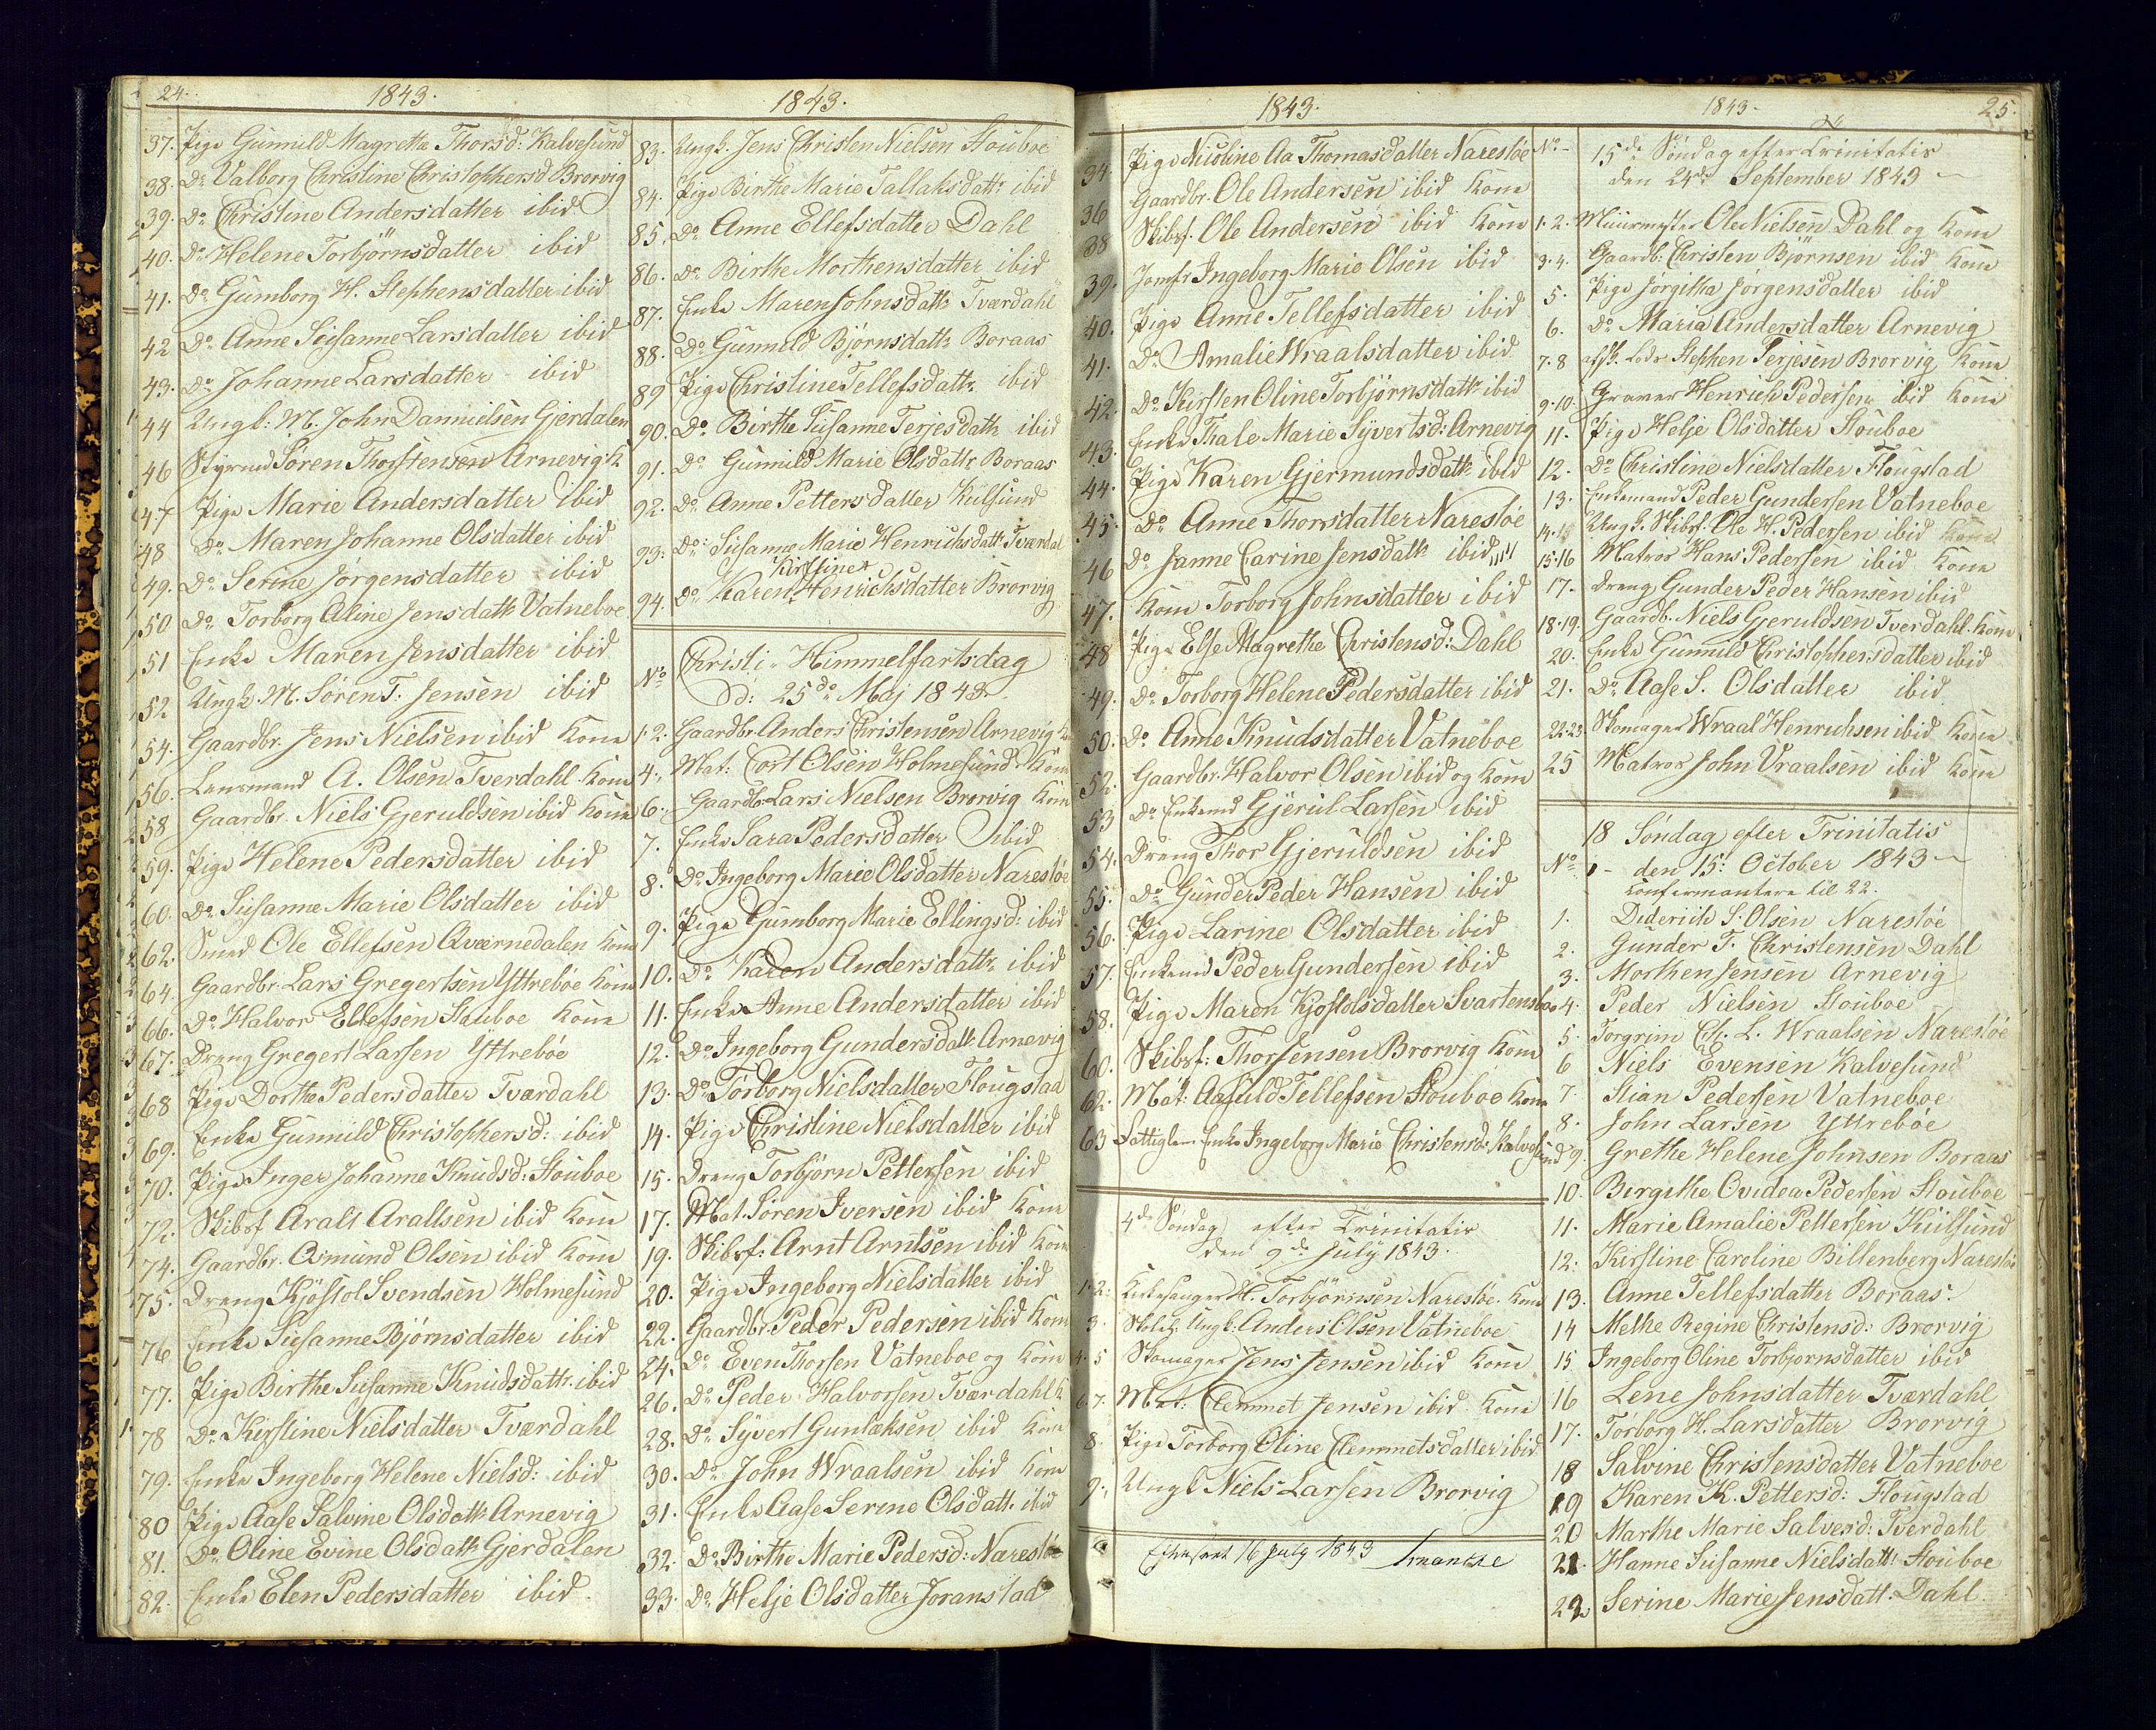 24.
1843.
1843.
37. Pige Gunnild Magrethe Thorsd: Kalvesund
38. Do Valborg Christine Christophersd Brorvig
39. Do Christine Andersdatter ibid
40. Do Helene Torbjörnsdatter ibid
41. Do Gumborg H. Stephensdatter ibid
42 Do Anne Susanne Larsdatter ibid
43. Do Johanne Larsdatter ibid
44 Ungk: M. John Dannielsen Gjerdalen
46 Styrmd Sören Thorstensen Arnevig K
47 Pige Marie Andersdatter ibid
48 Do Maren Johanne Olsdatter ibid
49. Do Serine Jörgensdatter ibid
50 Do Torborg Oline Jensdattr Vatneboe
51 Enke Maren Jensdatter ibid
52 Ungk. M. Sören T. Jensen ibid
54. Gaardbr. Jens Nielsen ibid Kone
56. Lensmand A. Olsen Tverdahl Kone
58 Gaardbr. Niels Gjeruldsen ibid Kone
59. Pige Helene Pedersdatter ibid
60. Do Susanne Marie Olsdatter ibid
62. Smed Ole Ellefsen Qværnedalen Kone
64. Gaardbr. Lars Gregertsen Yttreböe Kone
66. Do Halvor Ellefsen Stouboe Kone
67. Dreng Gregert Larsen Yttreböe
68 Pige Dorthe Pedersdatter Tværdahl
69. Enke Gunnild Christophersd: ibid
70. Pige Inger Johanne Knudsd: Stouboe
72. Skibsf Aralt Araltsen ibid Kone
74. Gaardbr. Osmund Olsen ibid Kone
75. Dreng Kjöstol Svendsen Holmesund
76 Enke Susanne Bjørnsdatter ibid
77. Pige Birthe Susanne Knudsdattr. ibid
78 Do Kirstine Nielsdatter Tværdahl
79. Enke Ingeborg Helene Nielsd: ibid
80 Pige Aase Salvine Olsdattr Arnevig
81. Do Oline Evine Olsdattr Gjerdalen
82. Enke Elen Pedersdatter ibid.
83. Ungk. Jens Christen Nielsen Stouboe
84. Pige Birthe Marie Tallaksdattr ibid
85. Do Anne Ellefsdatter Dahl
86. Do Birthe Morthensdatter ibid
87. Enke Maren Johnsdattr Tværdahl
88. Do Gunnild Björnsdattr Boraas
89 Pige Christine Tellefsdattr. ibid
90. Do Birthe Susanne Terjesdattr ibid
91. Do Gunnild Marie Olsdattr Boraas
92. Do Anne Pettersdatter Kulsund
93. Do: Susanne Marie Henrichsdattr Tværdal
Kirstine
94. Do Karen Henrichsdatter Brorvig
No Christi Himmelfartsdag
d: 25de Maj 1843.
1.2. Gaardbr. Anders Christensen Arnevig K
4. Mat: Cort Olsen Holmesund Kone
6. Gaardbr Lars Nielsen Brorvig Kone
7. Enke Sara Pedersdatter ibid
8. Do Ingeborg Marie Olsdatter Narestöe
9. Pige Gumborg Marie Ellingsd: ibid
10. Do Karen Andersdattr ibid
11. Enke Anne Andersdatter ibid
12. Do Ingeborg Gundersdattr Arnevig
13. Do Torborg Nielsdatter Flougstad
14. Pige Christine Nielsdatter ibid
15. Dreng Torbjørn Pettersen ibid
17. Mat. Sören Iversen ibid Kone
19. Skibsf: Arnt Arntsen ibid Kone
20. Pige Ingeborg Nielsdatter ibid
22. Gaardbr. Peder Pedersen ibid Kone
24. Do Even Thorsen Vatneboe og Kone
26. Do Peder Halvorsen Tværdahl K
28. Do Syvert Gunlaksen ibid Kone
30. Do John Wraalsen ibid Kone
31. Enke Aase Serine Olsdatt. ibid
32. Do Birthe Marie Pedersd: Narestöe
33. Do Helje Olsdatter Joranstad
1843.
34. Pige Nicoline Aa Thomasdatter Narestöe
36 Gaardbr. Ole Andersen ibid Kone
38 Skibsf. Ole Andersen ibid Kone
39. Jomfr Ingeborg Marie Olsen ibid
40. Pige Anne Tellefsdatter ibid
41. Do Amalie Wraalsdatter ibid
42. Do Kirsten Oline Torbjörnsdattr ibid
43. Enke Thale Marie Syvertsd: Arnevig
44. Pige Karen Gjermundsdattr ibid
45. Do Anne Thorsdatter Narestöe
46 Do Janne Carine Jensdattr ibid
47. Kone Torborg Johnsdatter ibid
48 Pige Else Magrethe Christensd: Dahl
49. Do Torborg Helene Pedersdatter ibid
50. Do Anne Knudsdatter Vatneboe
52. Gaardbr. Halvor Olsen ibid og Kone
53 Do Enkemd Gjerul Larsen ibid
54. Dreng Thor Gjeruldsen ibid
55. Do Gunder Peder Hansen ibid
56. Pige Larine Olsdatter ibid
57. Enkemd Peder Gundersen ibid
58. Pige Maren Kjostolsdatter Svartensboe
60. Skibsf: Thor Jensen Brorvig Kone
62. Mat: Aasuld Tellefsen Stouboe Kone
63 Fattiglem Enke Ingeborg Marie Christensd: Kalvesund
4de Söndag efter Trinitatis
den 9de July 1843.
1.2. Kirkesanger H. Torbjörnsen Narestöe. Kone
3. Ungk: Anders Olsen Vatneboe
4. 5 Skomager Jens Jensen ibid Kone
6.7. Mat: Clemmet Jensen ibid Kone
8. Pige Torborg Oline Clemmetsdatter ibid.
9. Ungk Niels Larsen Brorvig
Efterseet 16 July 1843
1843.
25.
No 15de Söndag efter Trinitatis
den 24de September 1843
1.2. Muurmester Ole Nielsen Dahl og Kone
3.4. Gaardb: Christen Bjørnsen ibid Kone
5. Pige Jörgitha Jörgensdatter ibid
6. Do Maria Andersdatter Arnevig
7.8 Lods Stephen Terjesen Brorvig Kone
9.10 Graver Henrich Pedersen ibid Kone
11. Pige Helje Olsdatter Stouboe
12. Do Christine Nielsdatter Flougstad
13. Enkemand Peder Gundersen Vatneboe
14. Ungk. Skibsf. Ole H. Pedersen ibid
15.16 Matros Hans Pedersen ibid Kone
17. Dreng Gunder Peder Hansen ibid
18.19. Gaardb. Niels Gjeruldsen Tverdahl Kone
20. Enke Gunnild Christophersdatter ibid
21. Do Aase S. Olsdatter ibid
22.23. Skomager Wraal Henrichsen ibid Kone
25 Matros John Vraalsen ibid Kone
18 Söndag efter Trinitatis
No den 15: October 1843
Confirmantere til 22.
1. Diderich S. Olsen Narestöe
2. Gunder T. Christensen Dahl
3. Morthen Jensen Arnevig
4. Peder Nielsen Stouboe
5. Torgrim Ch. L. Wraalsen Narestöe
6 Niels Evensen Kalvesund
7. Stian Pedersen Vatneboe
8. John Larsen Yttreböe
9. Grethe Helene Johnsen Boraas
10. Birgithe Ovidea Pedersen Stouboe
11. Marie Amalie Pettersen Kulsund
12. Kirstine Caroline Billenberg Narestöe
13. Anne Tellefsdatter Boraas.
14 Methe Regine Christensd: Brorvig
15 Ingeborg Oline Torbjornsdatter ibid
16 Lene Johnsdatter Tværdahl
17. Torborg H. Larsdatter Brorvig
18 Salvine Christensdatter Vatneboe
19 Karen K. Pettersd: Flougstad
20 Marthe Marie Salvesd: Tverdahl
21. Hanne Susanne Nielsdatt: Stouboe
22. Serine Marie Jensdatt. Dahl